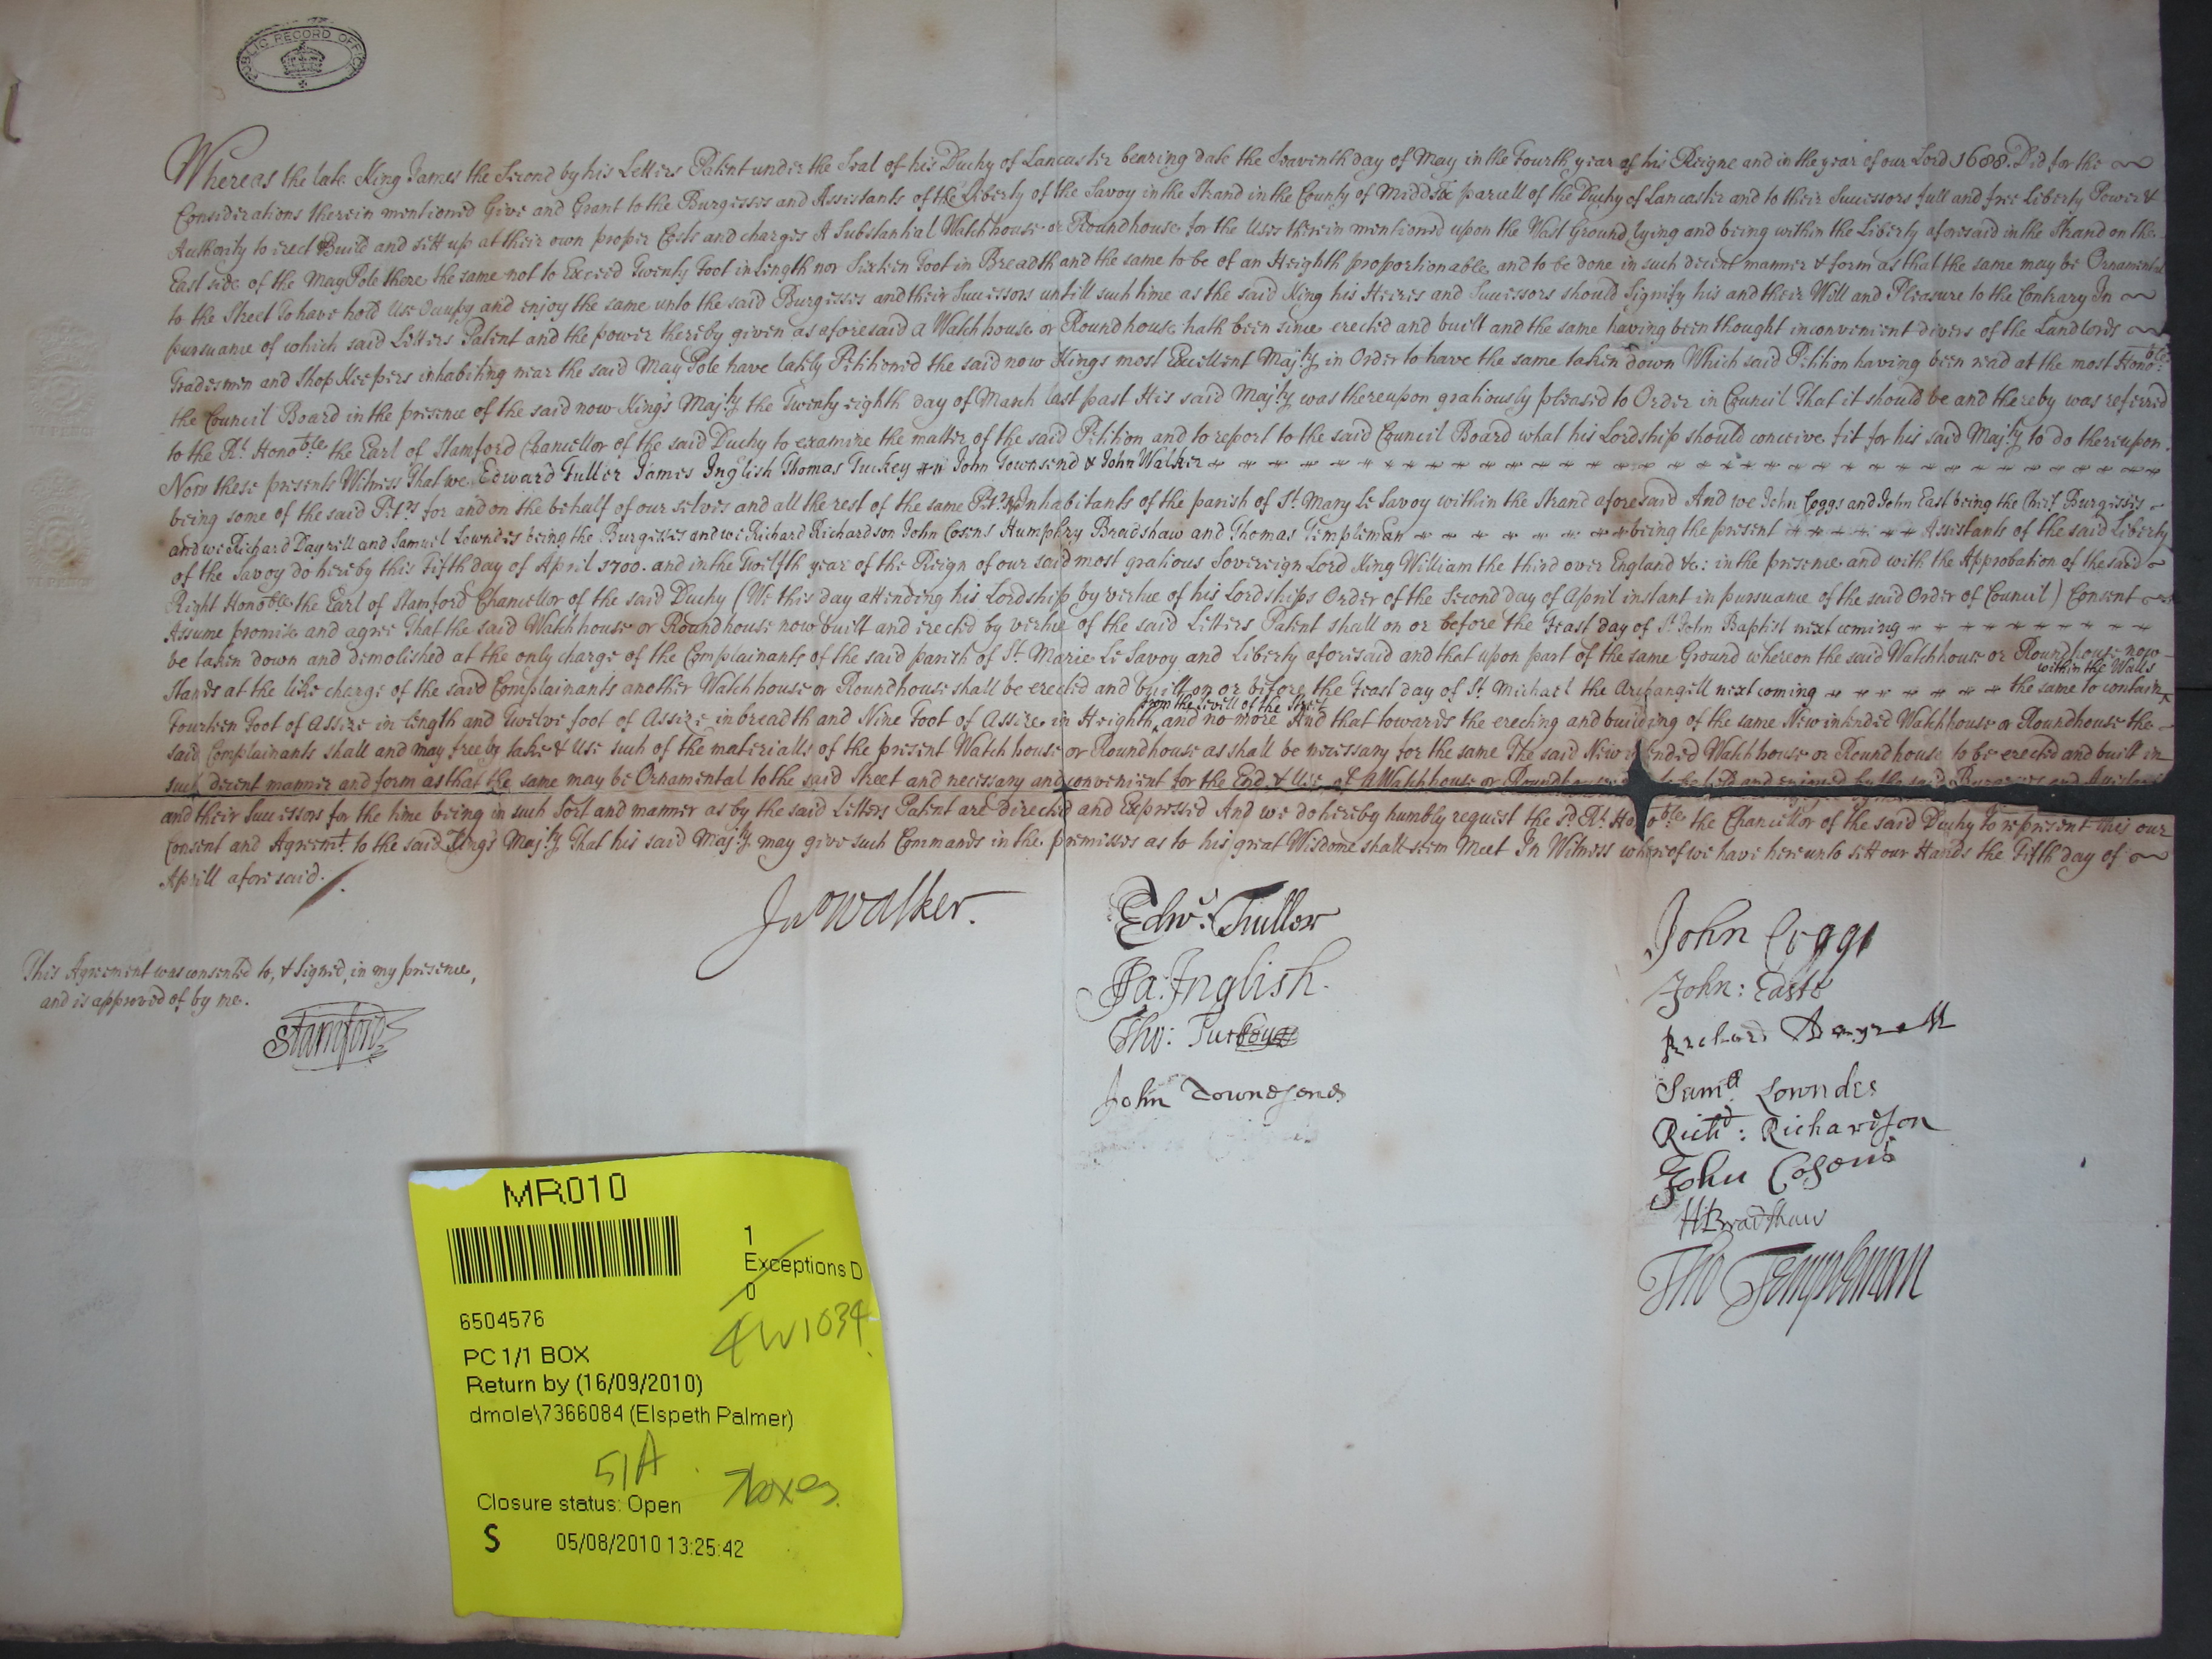 PUBLIC RECORD OFFICE
Whereas the late King James the Second by his Letters Patent under the Seal of his Dutchy of Lancaster bearing date the Seaventh day of May in the Fourth year of his Reigne and in the year of our Lord 1688. Did for the
Considerations therein mentioned Give and Grant to the Burgesses and Assistants of the Liberty of the Savoy in the Strand in the County of Midd̃x parcell of the Duchy of Lancaster and to their Successors full and free Liberty Power &
Authority to erect Build and sett up at their own proper Costs and charges A Substantial Watchhouse or Roundhouse for the Uses therein mentioned upon the Vast Ground lying and being within the Liberty aforesaid in the Strand on the
East side of the May Pole there the same not to Exceed Twenty Foot in Length nor Sixteen Foot in Breadth and the same to be of an Heighth proportionable and to be done in such decent manner & form as that the same may be Ornamental
to the Street To have hold Use Occupy and enjoy the same unto the said Burgesses and their Successors untill such time as the said King his Heires and Successors should Signify his and their Will and Pleasure to the Contrary In
pursuance of which said Letters Patent and the power thereby given as aforesaid a Watchhouse or Roundhouse hath been since erected and built and the same having been thought inconvenient divers of the Landlords
Tradesmen and Shop Keepers inhabiting near the said May Pole have lately Petitioned the said now Kings most Excellent Maj:ty in Order to have the same taken down Which said Petition having been read at the most Hono:ble
the Council Board in the presence of the said now Kings Maj:ty the Twenty eighth day of March last past His said Maj:ty was thereupon gratiously pleased to Order in Council That it should be and thereby was referred
to the Rt. Hono:ble the Earl of Stamford Chancellor of the said Duchy to examine the matter of the said Petition and to report to the said Council Board what his Lordship should conceive fit for his said Maj:ty to do thereupon.
Now these presents Witness That we Edward Fuller James Inglish Thomas Tuckey John Townsend & John Walker
being some of the said Petrs for and on the behalf of our selves and all the rest of the same Petrs Inhabitants of the parish of St. Mary Le Savoy within the Strand aforesaid And we John Coggs and John East being the Cheif Burgesses
and we Richard Dayrell and Samuel Lowndes being the Burgesses and we Richard Richardson John Cosens Humphry Bradshaw and Thomas Templeman being the present Assistants of the said Liberty
of the Savoy do hereby this Fifth day of April 1700. and in the Twelfth year of the Reign of our said most gratious Sovereign Lord King William the third over England &c: in the presence and with the Approbation of the said
Right Hono:ble the Earl of Stamford Chancellor of the said Duchy (We this day attending his Lordship by vertue of his Lordships Order of the Second day of April instant in pursuance of the said Order of Council) Consent
Assume promise and agree That the said Watchhouse or Roundhouse now built and erected by vertue of the said Letters Patent shall on or before the Feast day of St. John Baptist next coming
be taken down and demolished at the only charge of the Complainants of the said parish of St. Marie Le Savoy and Liberty aforesaid and that upon part of the same Ground whereon the said Watchhouse or Roundhouse now
within the Walls
Stands at the like charge of the said Complainants another Watchhouse or Roundhouse shall be erected and built on or before the Feast day of St. Michael the Archangell next coming the same to contain
from the Levell of the Street
Fourteen Foot of Assize in length and Twelve foot of Assize in breadth and Nine Foot of Assize in Heighth and no more And that towards the erecting and building of the same New intended Watchhouse or Roundhouse the
said Complainants shall and may freely take & Use such of the materialls of the present Watch house or Roundhouse as shall be necessary for the same The said New intended Watchhouse or Roundhouse to be erected and built in
such decent manner and form as that the same may be Ornamental to the said Street and necessary and convenient for the End & Use of a Watchhouse or Roundhouse
and their Successors for the time being in such Sort and manner as by the said Letters Patent are directed and Expressed And we do hereby humbly request the sd. Rt. Hono:ble the Chancellor of the said Duchy to represent this our
Consent and Agreemt. to the said Kings Maj:ty That his said Maj:ty may give such Commands in the premisses as to his great Wisdome shall seem Meet In Witness whereof we have hereunto sett our Hands the Fifth day of
Aprill aforesaid.
Jno Walker.
Edwd: Fuller
Ja: Inglish.
Tho: Tuckey
John Townesend
John Coggs
John: Easte
Richard Dayrell
Samll Lowndes
Richd: Richardson
John Cosens
H Bradshaw
Tho Templeman
This Agreement was consented to, & Signed, in my presence,
and is approved of by me.
Stamford
MR010
1
Exceptions D
0
6504576
4W1034
PC 1/1 BOX
Return by (16/09/2010)
dmole\7366084 (Elspeth Palmer)
51A
7boxes
Closure status: Open
S 05/08/2010 13:25:42